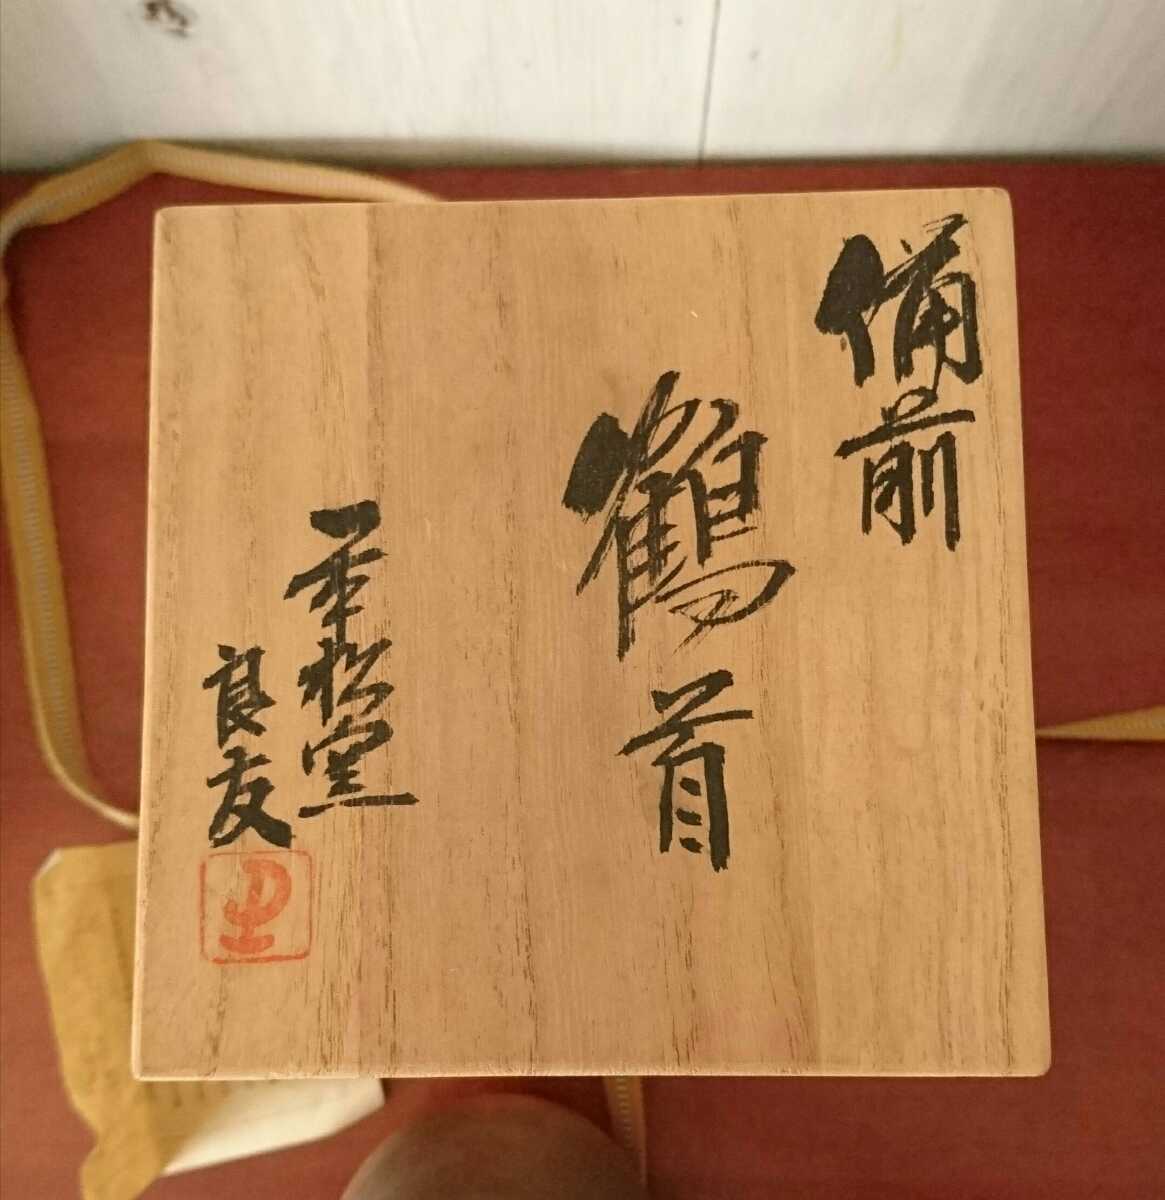 備前
鶴首
一本松窯
良友